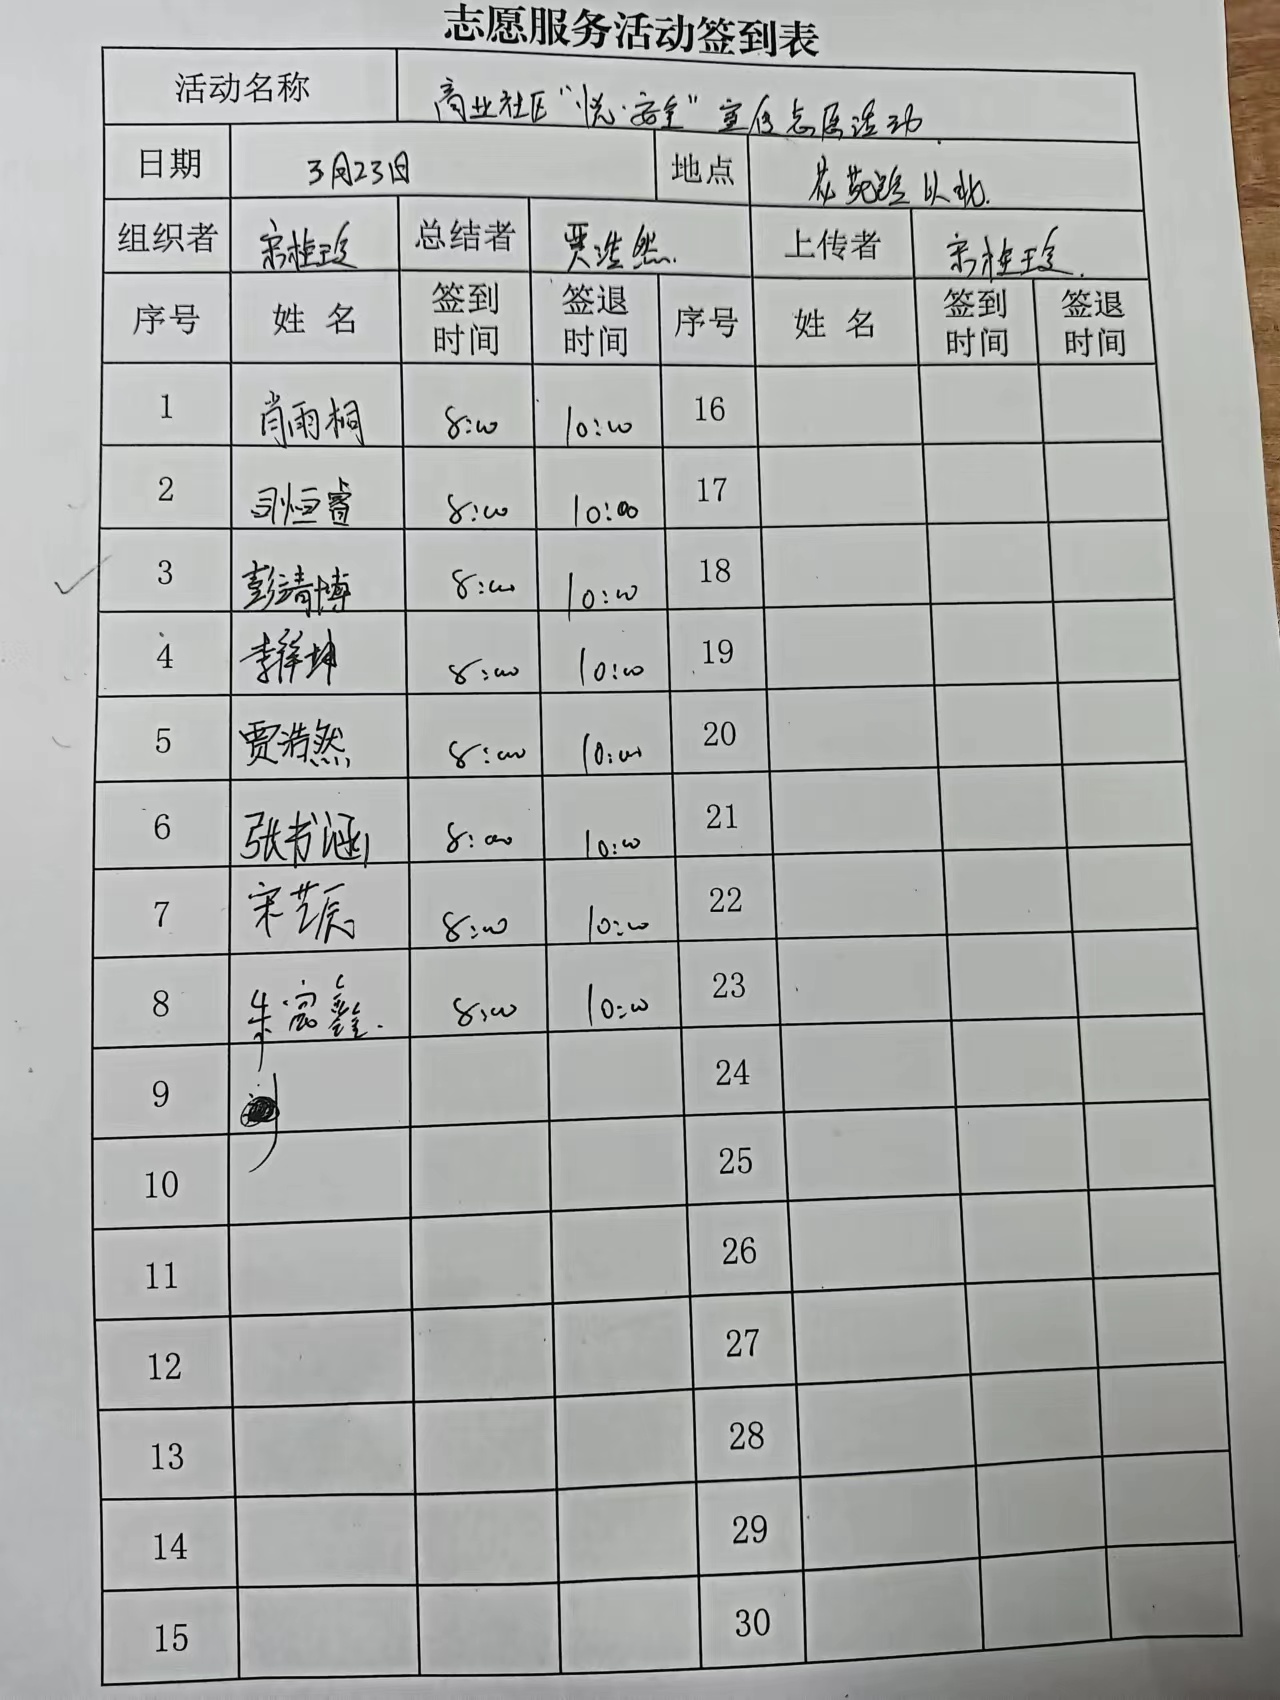 志愿服务活动签到表
活动名称 商业社区“悦·安全”宣传志愿活动
日期 3月23日 地点 花苑路以北.
组织者 宋桂玫 总结者 贾浩然. 上传者 宋桂玫.
序号 姓名 签到时间 签退时间 序号 姓名 签到时间 签退时间
1 肖雨桐 8:00 10:00 16
2 司恒睿 8:00 10:00 17
3 彭清博 8:00 10:00 18
4 李祥坤 8:00 10:00 19
5 贾浩然 8:00 10:00 20
6 张书涵 8:00 10:00 21
7 宋艺辰 8:00 10:00 22
8 朱富鑫. 8:00 10:00 23
9 24
10 25
11 26
12 27
13 28
14 29
15 30